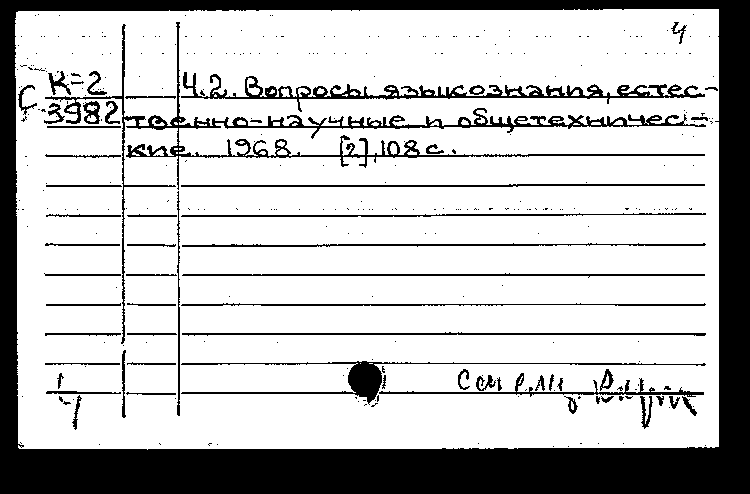 4
К-2
С 3982
Ч.2. Вопросы языкознания, естес-
твенно-научные и общетехничес-
кие. 1968. [2],108 с.
См